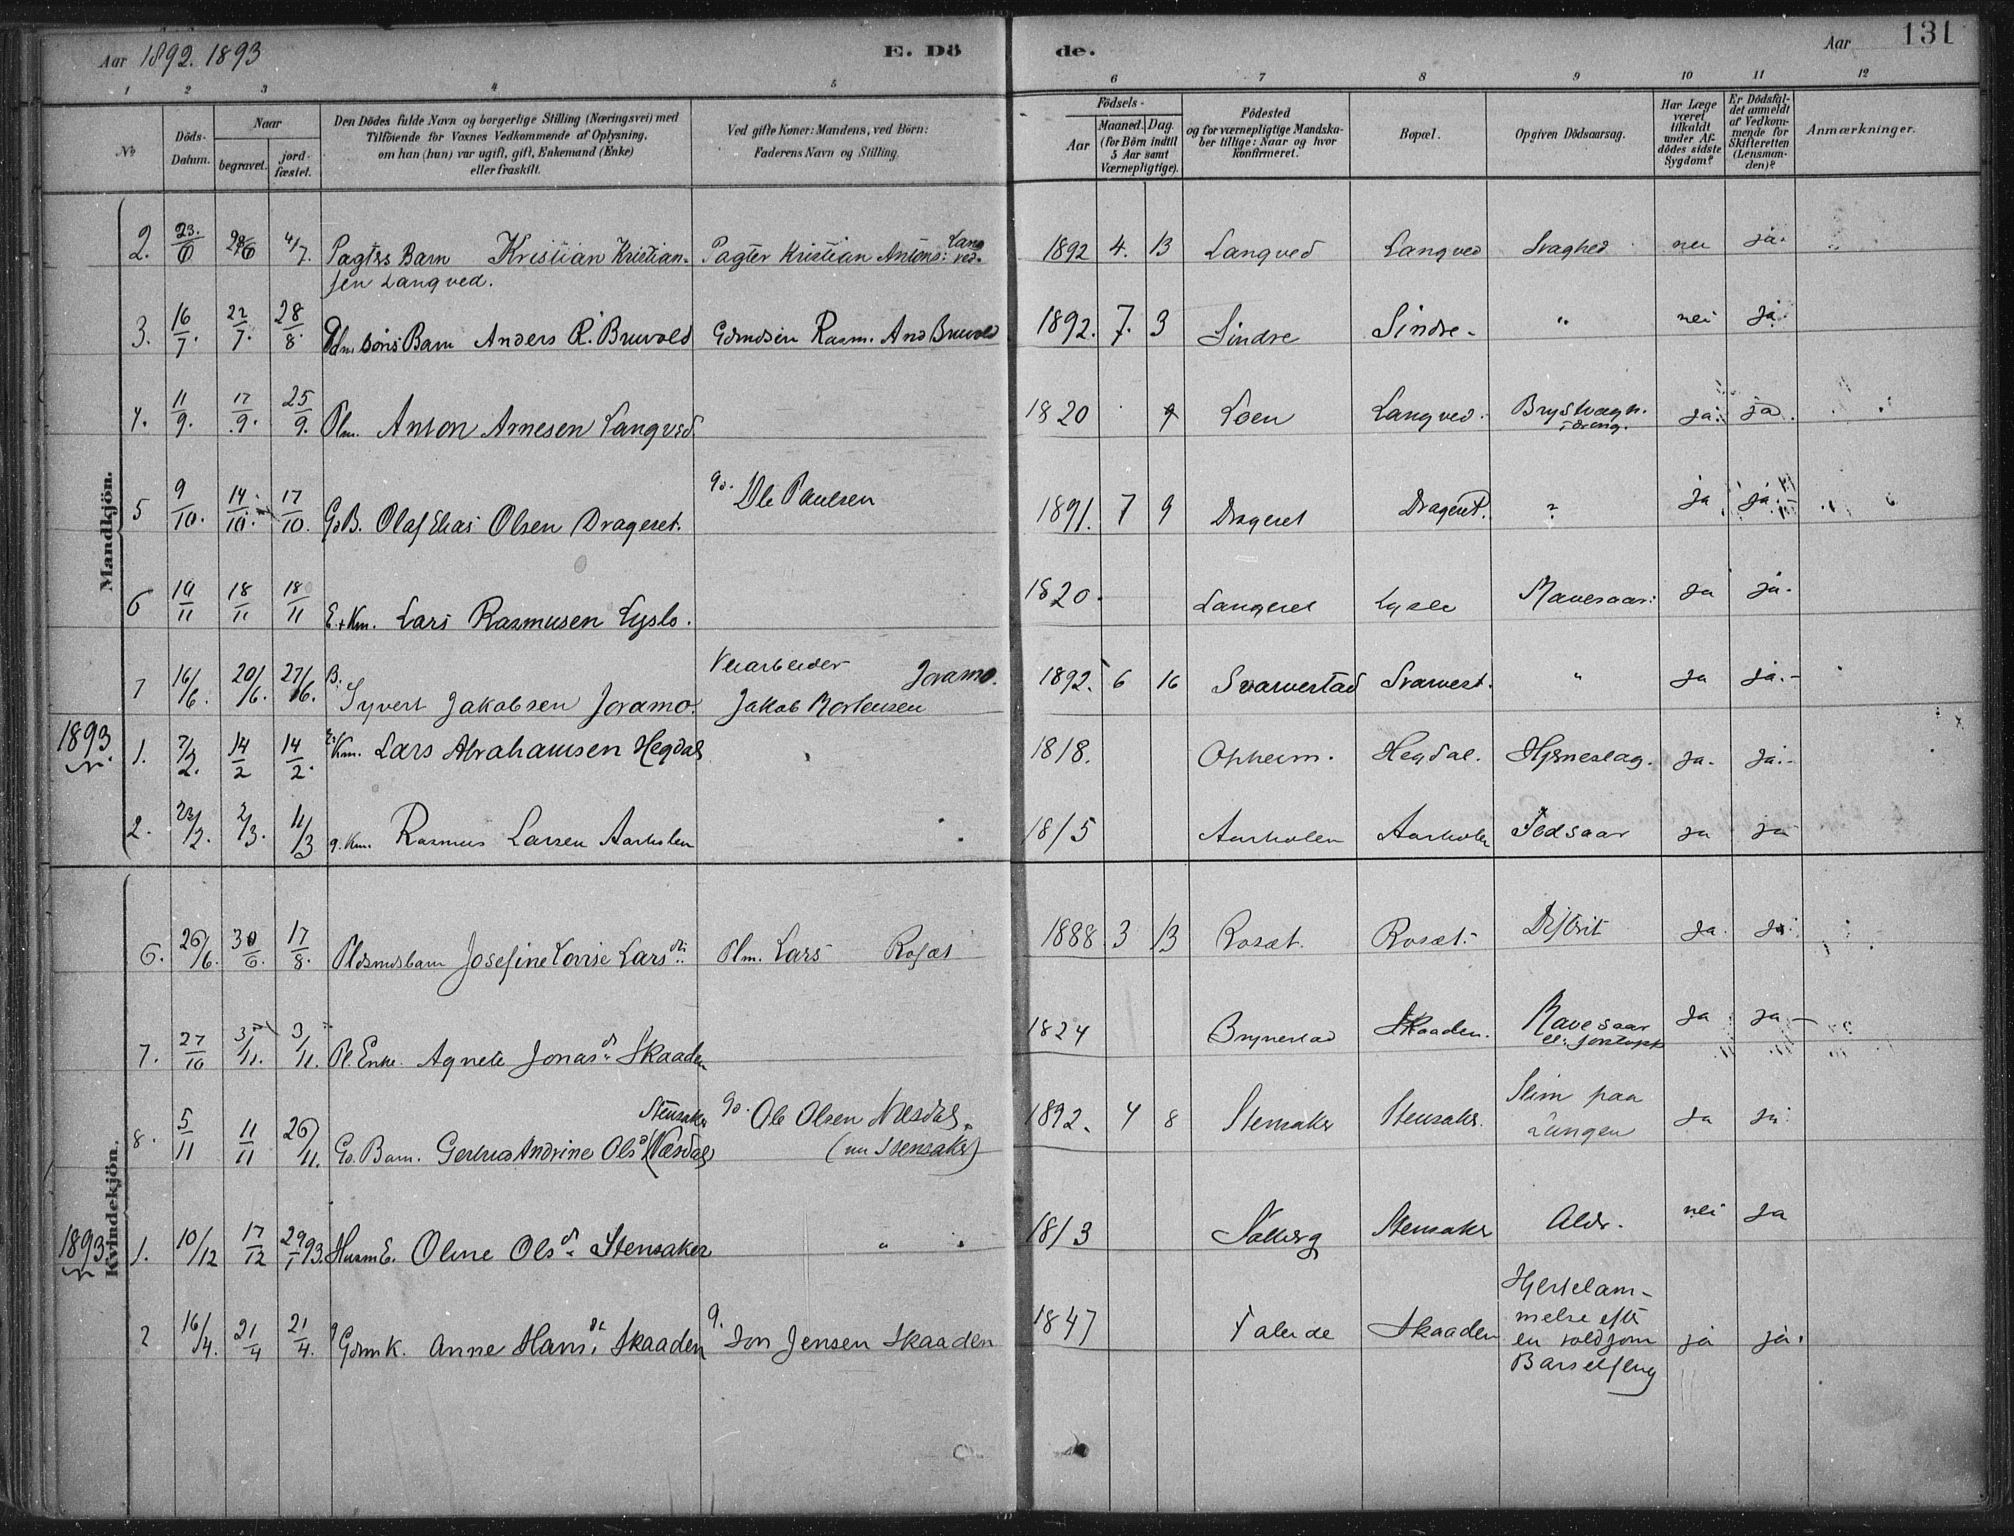 Aar 1892. 1893
E. Dö
de.
Aar
131
1 2 3 4 5 6 7 8 9 10 11 12
No
Döds-
Datum.
Naar
begravet.
jord-
fæstet.
Den Dödes fulde Navn og borgerlige Stilling (Næringsvei) med
Tilföiende for Voxnes Vedkommende af Oplysning,
om han (hun) var ugift, gift, Enkemand (Enke)
eller fraskilt.
Ved gifte Koner: Mandens, ved Börn:
Faderens Navn og Stilling.
Födsels-
Aar
Maaned. Dag.
(for Börn indtil
5 Aar samt
Værnepligtige).
Födested
og for værnepligtige Mandska-
ber tillige: Naar og hvor
konfirmeret.
Bopæl.
Opgiven Dödsaarsag.
Har Læge
været
tilkaldt
under Af-
dödes sidste
Sygdom?
Er Dödsfal-
det anmeldt
af Vedkom-
mende for
Skifteretten
(Lensman-
den)?
Anmærkninger.
Mandkjön.
2. 23./6 4/7. Pagters Barn Kristian Kristian- Pagter Kristian Antons: Lang 1892 4. 13 Langved Langved Svaghed nei ja. "
sen Langved. ved.
3. 16/7. 22/7. 28/8. Barn Anders R. Bruvold Gdmdsön Rasm. And Bruvold 1892. 7. 3 Sindre Sindre. " nei ja.
4. 11/9. 17/9. 25/9. Plm. Anton Arnesen Langved 1820 Loen Langved. ja. ja.
5 9/10. 14/10. 17/10. G.B. Olaf Elias Olsen Drageset. go. Ole Paulsen 1891. 7 9 Drageset Drageset. ? ja ja.
6 18/11 18/11 E. + Km. Lars Rasmusen Lyslo. 1820. Langeset Lyslo Mavesaar: ja ja.
7 16/6. 20/6. 27/6. B. Syvert Jakobsen Joramo. Veiarbeider Joramo. 1892. 6 16 Svarvestad Svarvest. " ja ja.
Jakob Mortensen
1893. 1. 7/2. 14/2 14/2. Km. Lars Abrahamsen Hegdal 1818. Opheim. Hegdal. Hjerneslag. ja. ja.
2. 22/2. 2/3. 11/3 g. Km. Rasmus Larsen Aarholen 1815 Aarholen Aarholen Fodsaar ja ja
Kvindekjön.
6. 26/6. 30/6. 17/8. Plsmdsbarn Josefine Lovise Larsdtr. Plm. Lars Rosæt 1888. 3 13 Rosæt. Rosæt. Difterit ja. ja.
7. 27/10 3/11. 3/11. Pl. Enke. Agnete Jonasd. Skaaden 1824 Brynestad Skaaden. Mavesaar ja ja
8. 5/11 11/11 26/11. Go. Barn. Gertrud Andrine Olsd Stensaker (Næsdal) go. Ole Olsen Næsdal. 1892. 4 8 Stensaker Stensaker. Slim paa ja ja.
(nu Stensaker) Lungen
1893 1. 10/12 17/12 29/1 93. Husm E. Oline Olsd. Stensaker " 1813 Solberg Stensaker Alder. nei ja
2 16/4. 21/4 21/4. Gdmk. Anne Hansd. Skaaden g. Jon Jensen Skaaden 1847 Taleide Skaaden Hjertelam-
melse efter
en voldsom ja ja.
Barselfeng